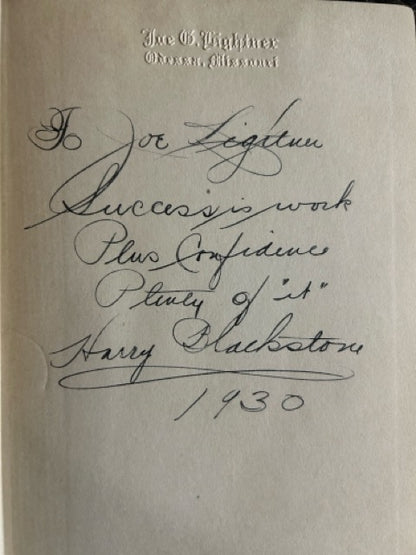 Joe G. Lightner
Odessa, Missouri
To Joe Lightner
Success is work
Plus Confidence
Plenty of "it"
Harry Blackstone
1930